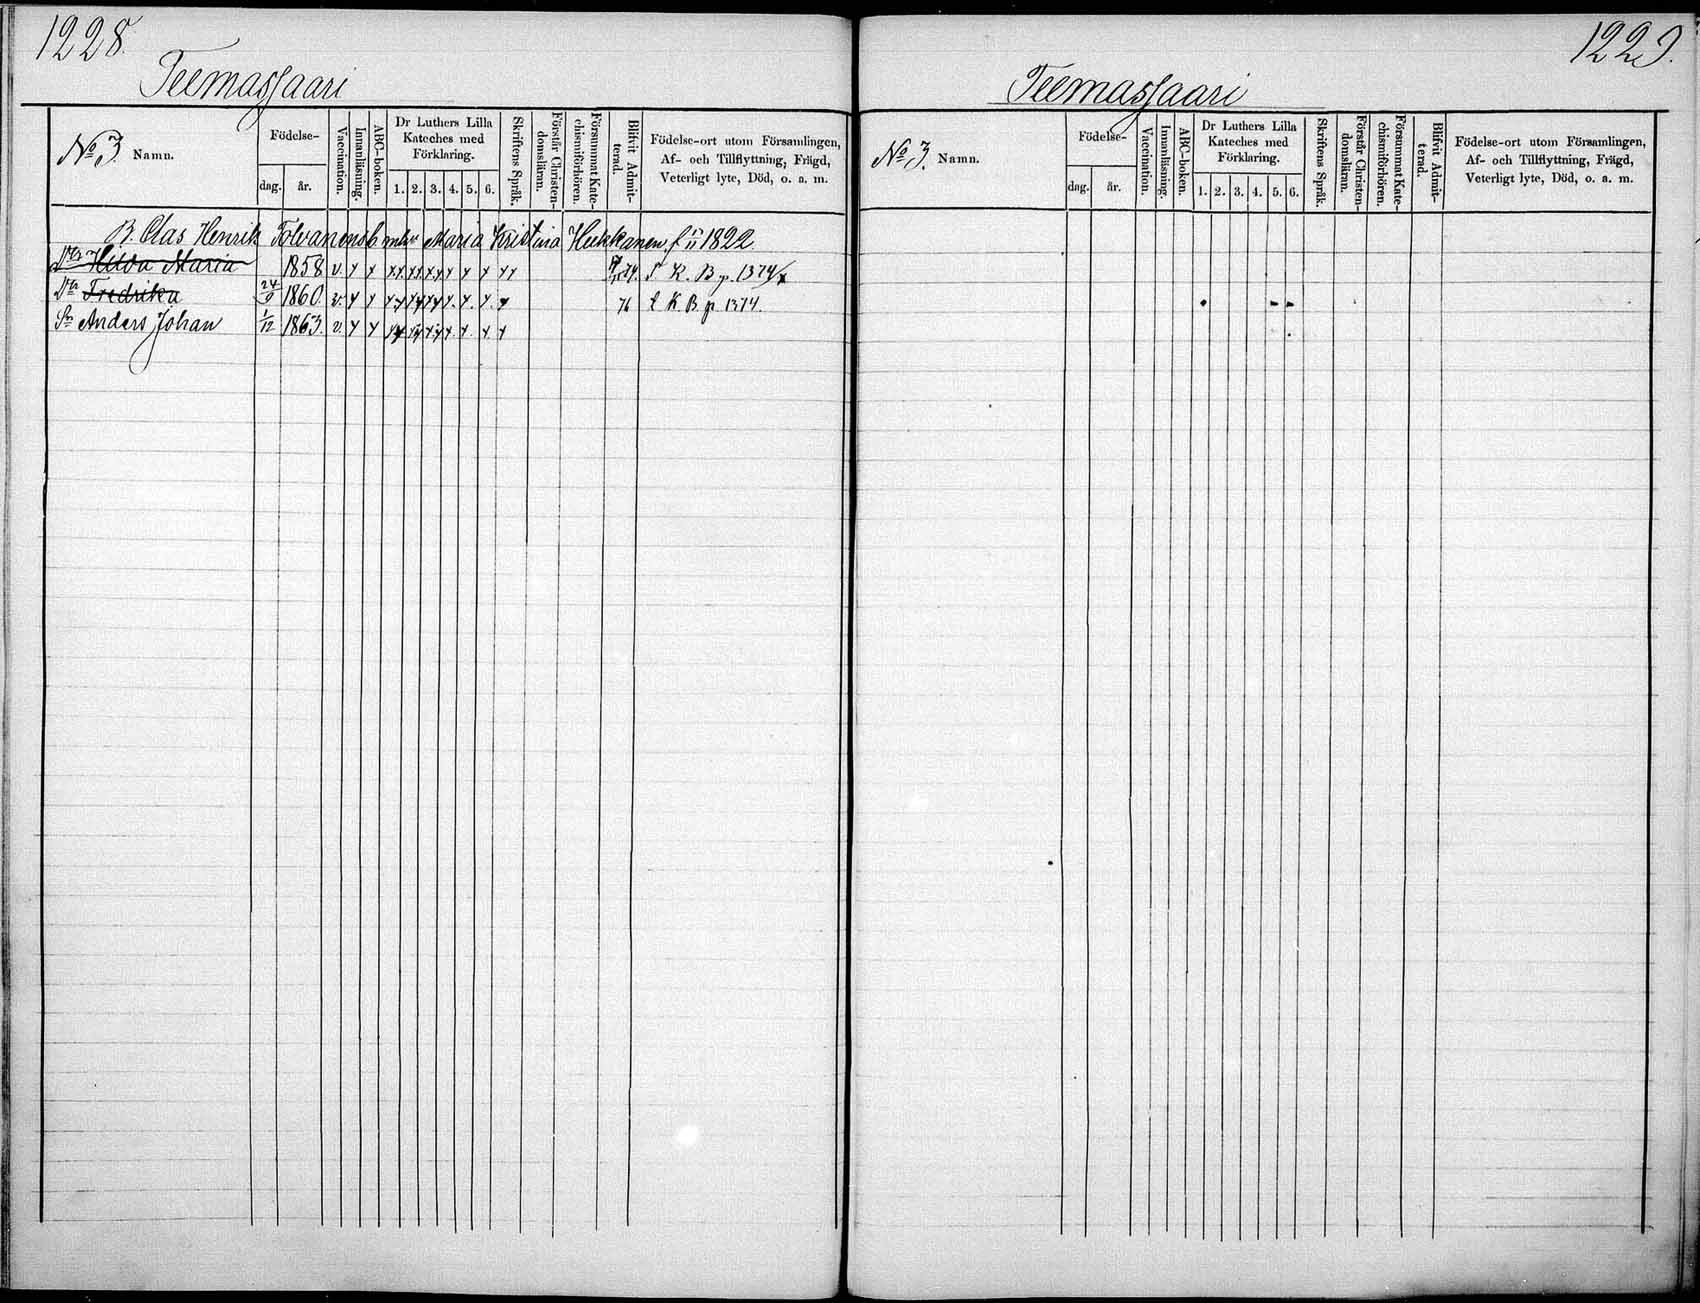 1228.
Teemassaari
No 3. Namn.
Födelse-
dag. år.
Vaccination.
Innanläsning.
ABC-boken.
Dr Luthers Lilla
Kateches med
Förklaring.
1. 2. 3. 4. 5. 6.
Skriftens Språk.
Förstår Christen-
domsläran.
Försummat Kate-
chismiförhören.
Blifvit Admit-
terad.
Födelse-ort utom Församlingen,
Af- och Tillflyttning, Frägd,
Veterligt lyte, Död, o. a. m.
B. Clas Henrik Tolvanens Maria Kristina Hukkanen f. 1822.
Dr Hilda Maria 1858 v. 74. K. B p. 1374
Dr Fredrika 24/9 1860. v. 76 K B p 1374.
Sn Anders Johan 1/12 1863. v.
1229.
Teemassaari
No 3. Namn.
Födelse-
dag. år.
Vaccination.
Innanläsning.
ABC-boken.
Dr Luthers Lilla
Kateches med
Förklaring.
1. 2. 3. 4. 5. 6.
Skriftens Språk.
Förstår Christen-
domsläran.
Försummat Kate-
chismiförhören.
Blifvit Admit-
terad.
Födelse-ort utom Församlingen,
Af- och Tillflyttning, Frägd,
Veterligt lyte, Död, o. a. m.